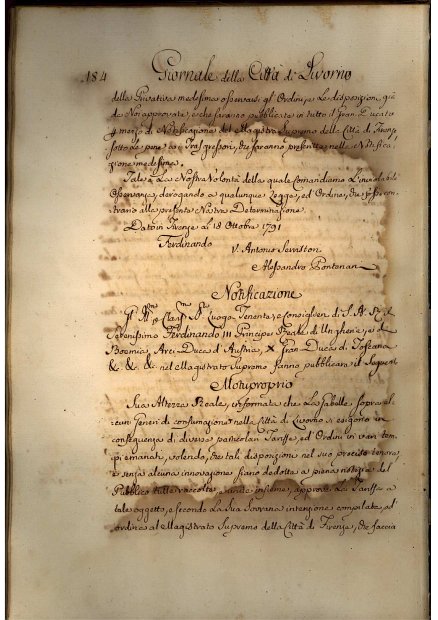 184 Giornale della Città di Livorno
della Privativa medesima osservarsi gl' Ordini, e Le disposizioni già
da Noi approvate, e che saranno pubblicate in tutto il Gran Ducato
a mezzo di Notificazione del Magistrato Supremo della Città di Firenze
sotto Le pene ai Trasgressori, che saranno prescritte nella Notifica-
zione medesima.
Tale è La Nostra Volontà della quale Comandiamo L'inviolabile
Osservanza, derogando a qualunque Legge, ed Ordine, che fosse con-
trario alla presente Nostra Determinazione.
Dato in Firenze a 18 Ottobre 1791
Ferdinando V. Antonio Serristori
Alessandro Pontenani
Notificazione
Gl' Ill.mi e Clar.mi SS.ri Luogo Tenente, e Consiglieri di S. A. R. il
Serenissimo Ferdinando III Principe Reale di Ungheria, e di
Boemia, Arci-Duca d'Austria, Gran Duca di Toscana
&. &. &. nel Magistrato Supremo fanno pubblicare il seguente
Motuproprio
Sua Altezza Reale, informata che La Gabelle, sopra al-
cuni Generi di consumazione nella Città di Livorno si esigono in
conseguenza di diverse particolari Tariffe, ed Ordini in vari tem-
pi emanati, volendo, che tali disposizioni nel suo preciso tenore
e senza alcuna innovazione siano dedotte a piena notizia del
Pubblico tutte raccolte, e unite insieme, approva La Tariffa a
tale oggetto, e secondo La Sua Sovrana intenzione compilata, ed
ordina al Magistrato Supremo della Città di Firenze, che faccia